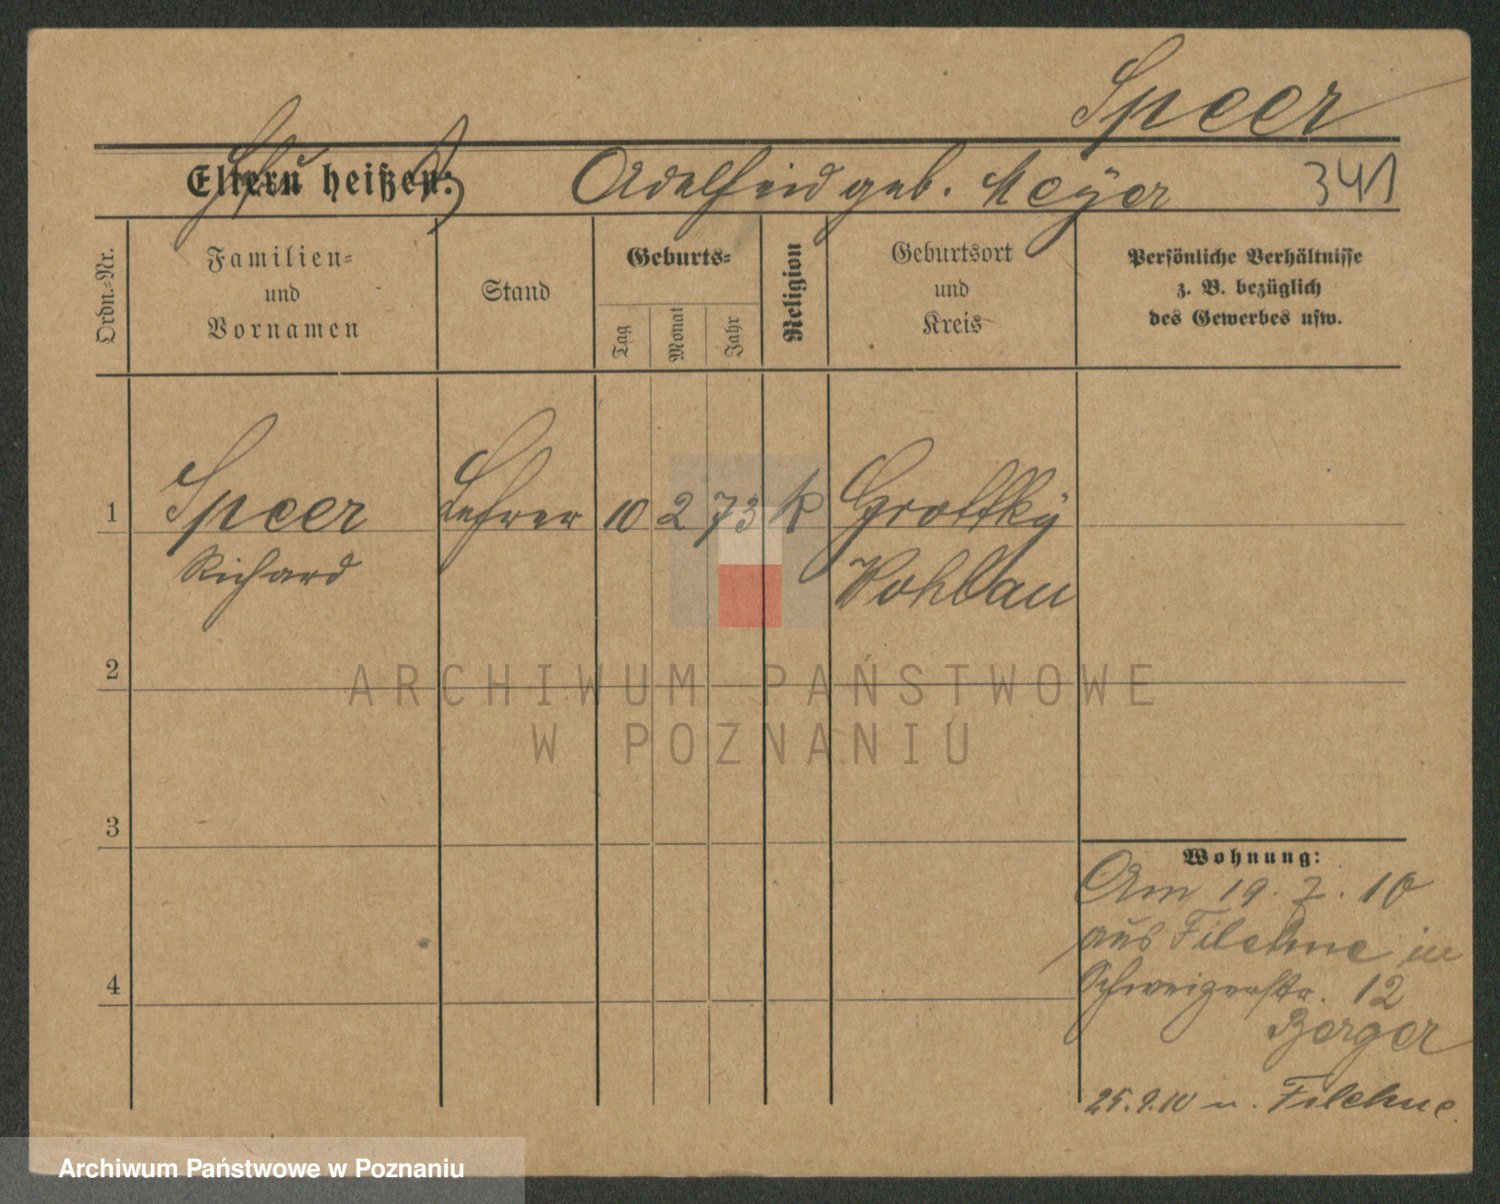 Speer
Eltern heißen:
Adelheid geb. Meyer
341
Ordn.=Nr.
Familien=
und
Vornamen
Stand
Geburts=
Tag
Monat
Jahr
Religion
Geburtsort
und
Kreis
Persönliche Verhältnisse
z. B. bezüglich
des Gewerbes usw.
1
Speer
Lehrer
10
2
73
k
Grottky
Richard
Wohlau
2
ARCHIWUM PAŃSTWOWE
W POZNANIU
3
Wohnung:
Am 19. 7. 10
aus Filehne in
Schweizerstr. 12
Berger
4
25.9.10 n. Filehne
Archiwum Państwowe w Poznaniu